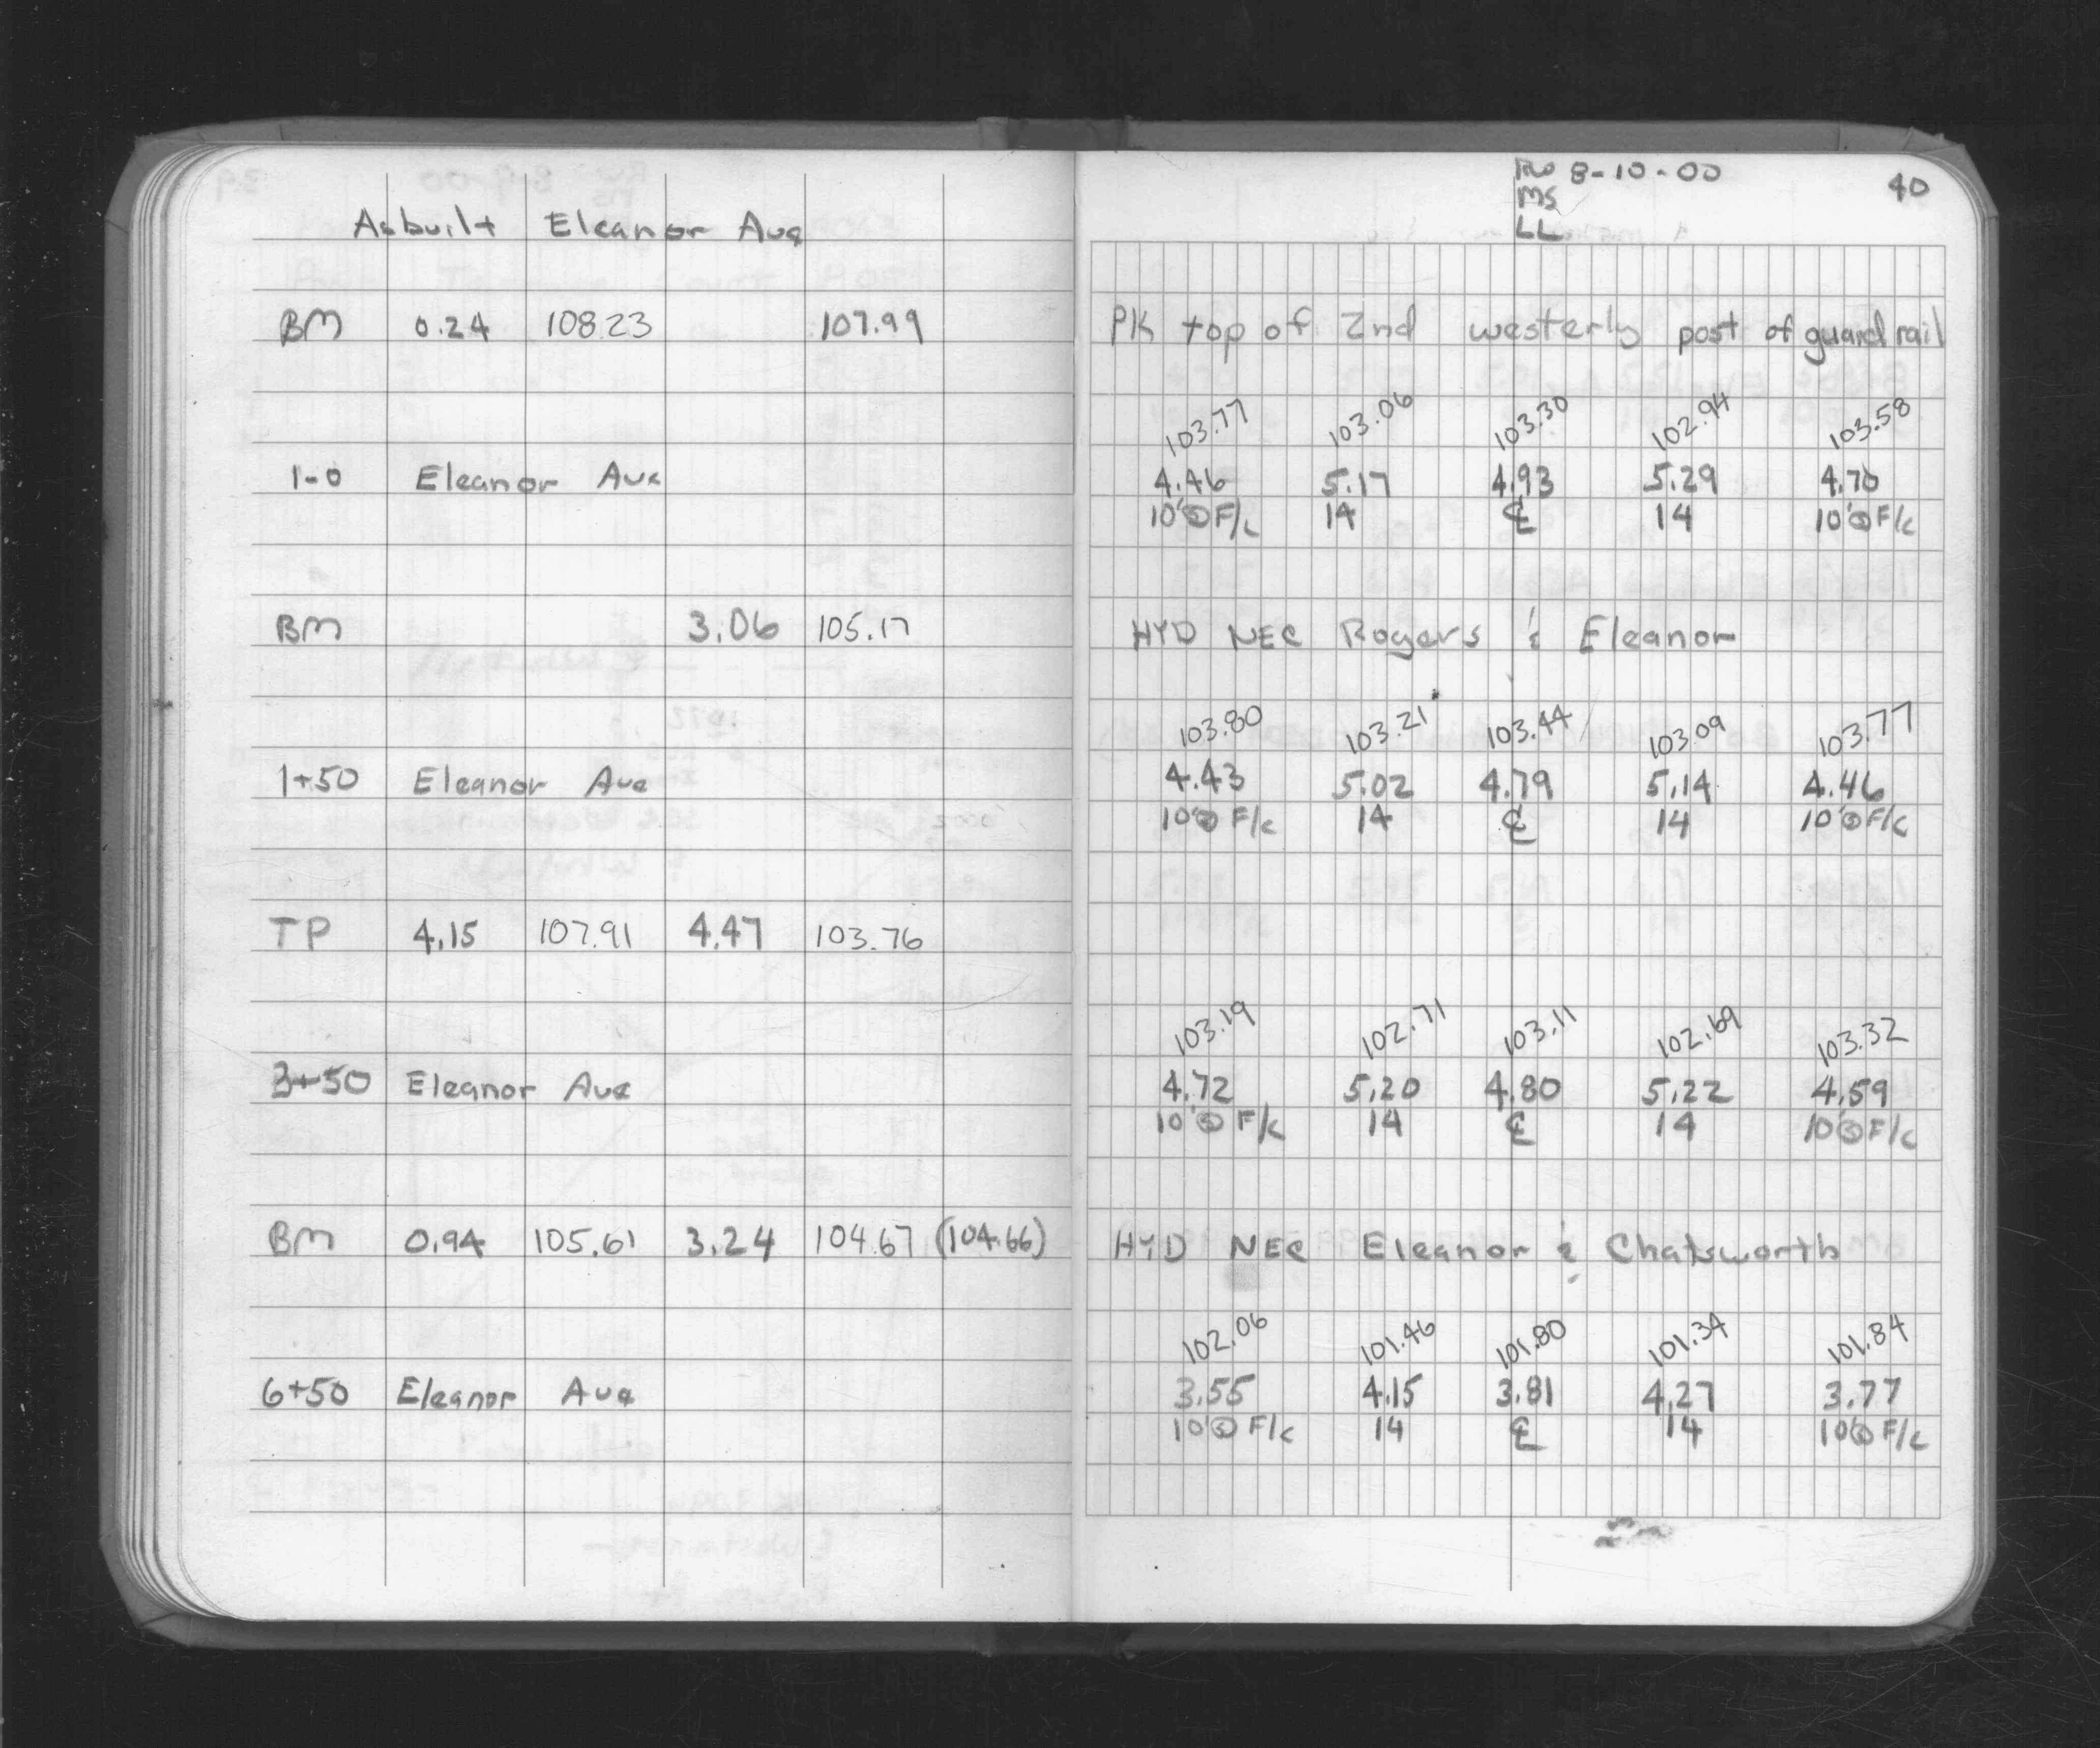 Asbuilt Eleanor Ave
BM 0.24 108.23 107.99
1-0 Eleanor Ave
BM 3.06 105.17
1+50 Eleanor Ave
TP 4.15 107.91 4.47 103.76
3+50 Eleanor Ave
BM 0.94 105.61 3.24 104.67 (104.66)
6+50 Eleanor Ave
8-10-00 40
MS
LL
PK top of 2nd westerly post of guard rail
103.77 103.06 103.30 102.94 103.58
4.46 5.17 4.93 5.29 4.70
10' F/c 14 ℄ 14 10' F/c
HYD NEC Rogers & Eleanor
103.80 103.21 103.44 103.09 103.77
4.43 5.02 4.79 5.14 4.46
10' F/c 14 ℄ 14 10' F/c
103.19 102.71 103.11 102.69 103.32
4.72 5.20 4.80 5.22 4.59
10' F/c 14 ℄ 14 10' F/c
HYD NEC Eleanor & Chatsworth
102.06 101.46 101.80 101.34 101.84
3.55 4.15 3.81 4.27 3.77
10' F/c 14 ℄ 14 10' F/c